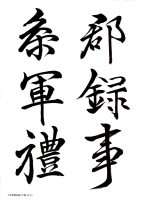 郡録事
条軍禮